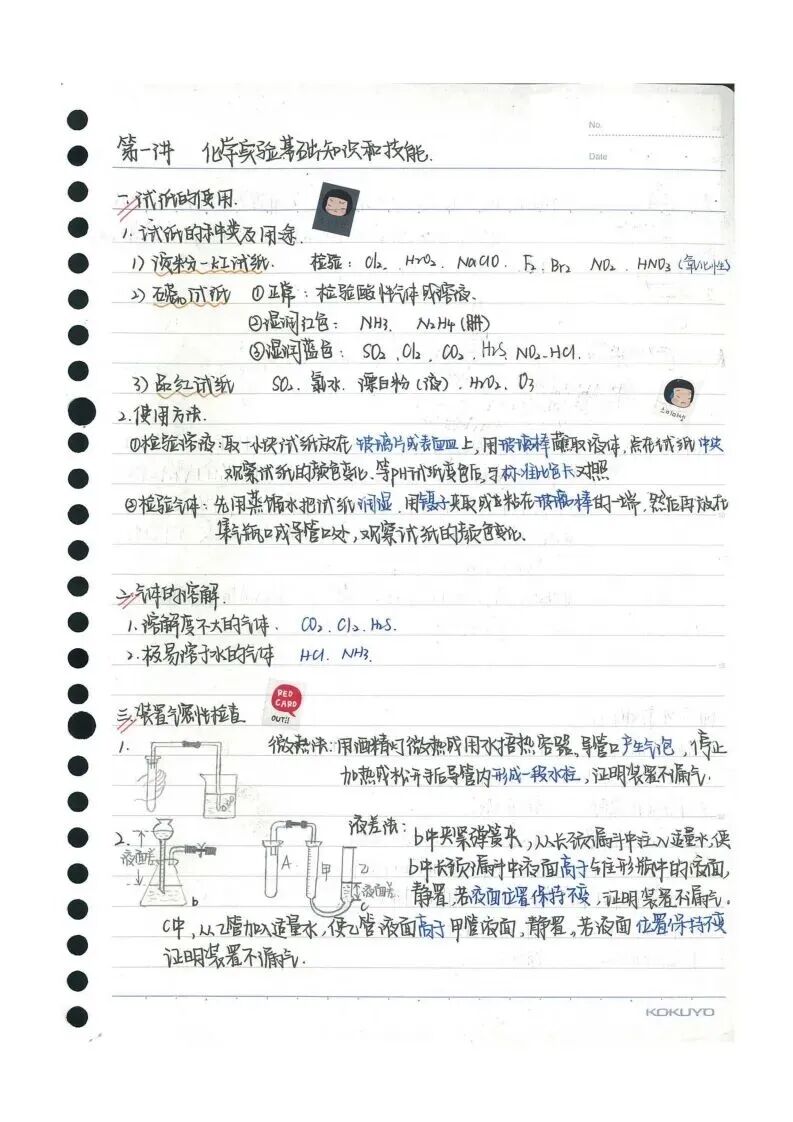 No.
Date
第一讲 化学实验基础知识和技能.
一. 试纸的使用.
1. 试纸的种类及用途.
1) 淀粉-KI试纸. 检验: Cl₂. H₂O₂. NaClO. F₂. Br₂ NO₂. HNO₃ (氧化性)
2) 石蕊试纸 ①正常: 检验酸性气体或溶液.
②湿润红色: NH₃. N₂H₄(肼)
③湿润蓝色: SO₂. Cl₂. CO₂. H₂S. NO₂. HCl.
3) 品红试纸 SO₂. 氯水. 漂白粉(液). H₂O₂. O₃
2. 使用方法.
①检验溶液: 取一小块试纸放在玻璃片或表面皿上, 用玻璃棒蘸取液体, 点在试纸中央
观察试纸的颜色变化. 等pH试纸变色后, 与标准比色卡对照
②检验气体: 先用蒸馏水把试纸润湿. 用镊子夹取或粘在玻璃棒的一端, 然后再放在
集气瓶口或导管口处, 观察试纸的颜色变化.
二. 气体的溶解.
1. 溶解度不大的气体. CO₂. Cl₂. H₂S.
2. 极易溶于水的气体 HCl. NH₃.
三. 装置气密性检查
RED
CARD
OUT!!
1. 微热法: 用酒精灯微热或用水捂热容器. 导管口产生气泡, 停止
加热或松开手后导管内形成一段水柱, 证明装置不漏气.
2. 液差法: b中夹紧弹簧夹, 从长颈漏斗中注入适量水, 使
b中长颈漏斗中液面高于锥形瓶中的液面,
静置, 若液面位置保持不变, 证明装置不漏气.
液面差
b
A
甲
乙
液面差
c
C中, 从乙管加入适量水, 使乙管液面高于甲管液面, 静置, 若液面位置保持不变
证明装置不漏气.
KOKUYO